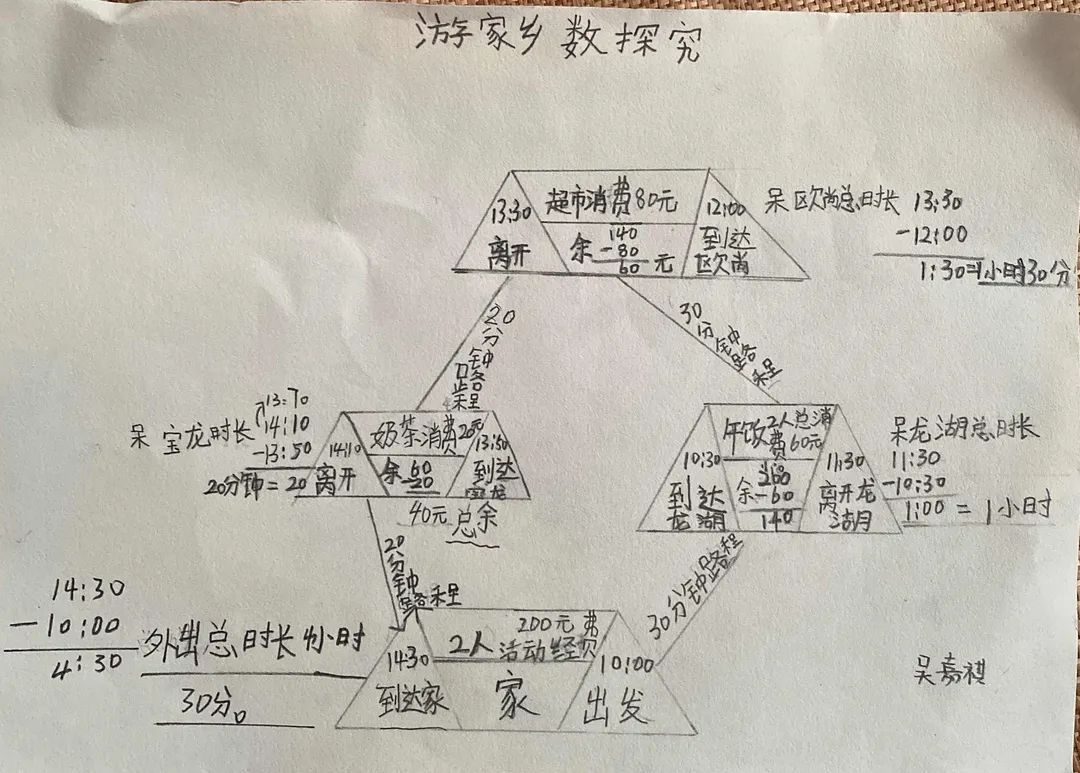 游家乡数探究
超市消费80元
13:30
离开
余
140
-80
60
元
12:00
到达
欧尚
呆欧尚总时长
13:30
-12:00
1:30=1小时30分
20分钟路程
30分钟路程
呆宝龙时长
13:70
14:10
-13:50
20分钟=20
14:10
离开
奶茶消费20元
余
60
-20
40元总余
13:50
到达
宝龙
10:30
到达
龙湖
午饭2人总消
费60元
余
200
-60
140
11:30
离开龙
湖
呆龙湖总时长
11:30
-10:30
1:00=1小时
20分钟路程
30分钟路程
14:30
-10:00
4:30
外出总时长4小时
30分。
14:30
到达家
2人
200元
活动经费
家
10:00
出发
吴嘉祺